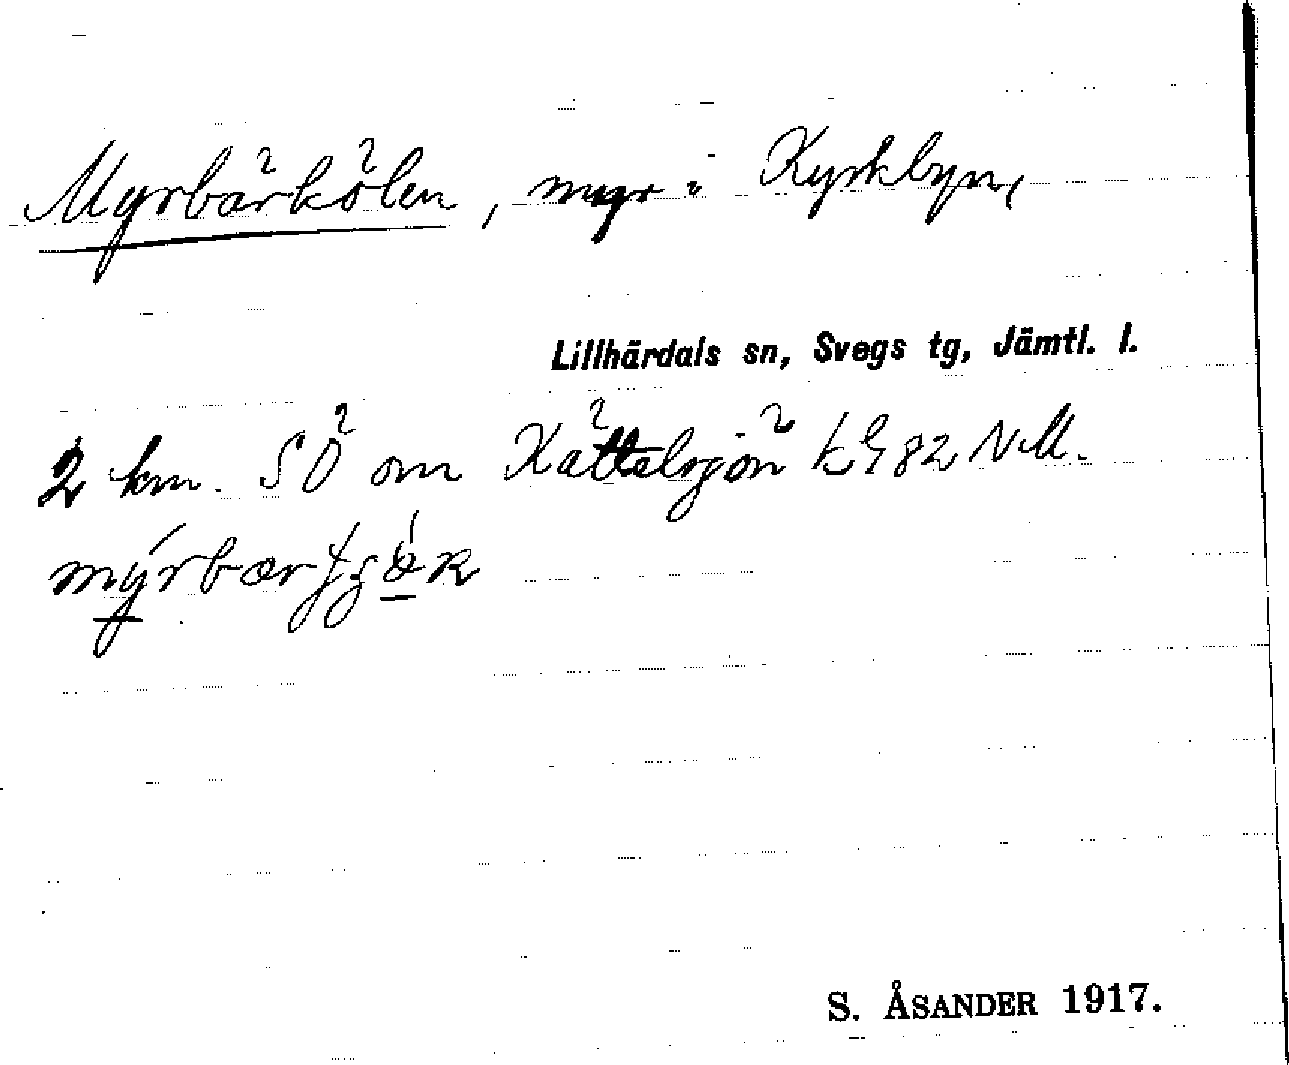 Myrbärkölen, myr i Kyrkbyn,
Lillhärdals sn, Svegs tg, Jämtl. l.
2 km. SÖ om Kättelsjön 82 NM.
S. ÅSANDER 1917.